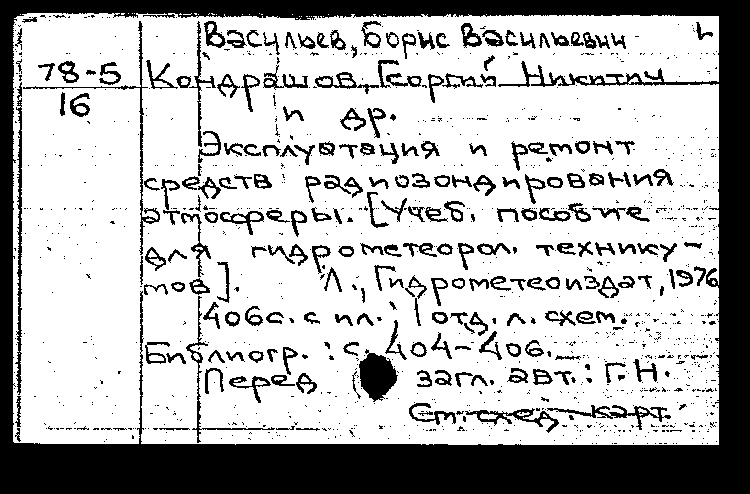 Васильев, Борис Васильевич
78-5 Кондрашов, Георгий Никитич
16 и др.
Эксплуатация и ремонт
средств радиозондирования
атмосферы. [Учеб. пособие
для гидрометеорол. технику-
мов]. Л., Гидрометеоиздат, 1976
406с. с ил.; 1 отд. л. схем.
Библиогр.: с. 404-406.
Перед загл. авт.: Г.Н.
См. след. карт.